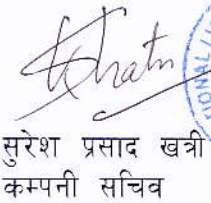 सुरेश प्रसाद खत्री
कम्पनी सचिव